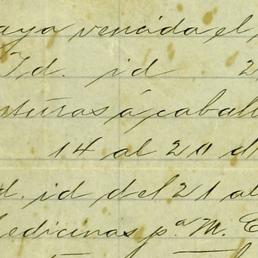 aya vencida el
Id. id 2
nturas á caball
14 al 20 d
d. id del 21 al
edicinas p.ª M. C